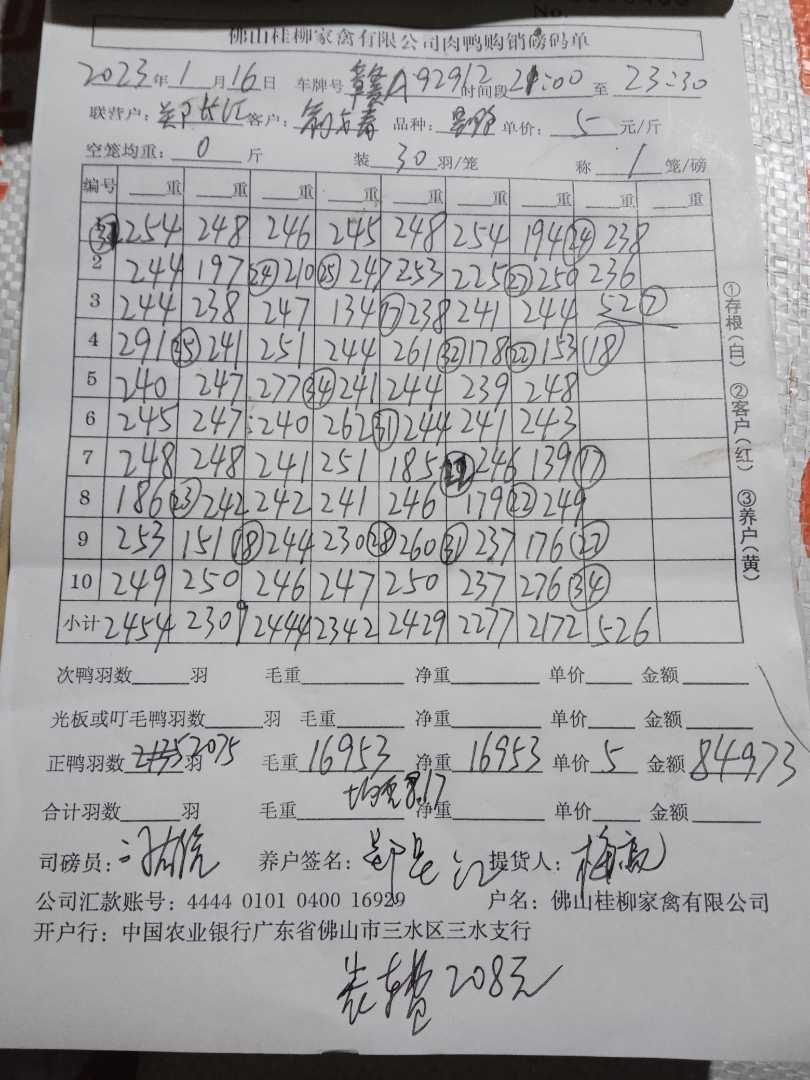 No.
佛山桂柳家禽有限公司肉鸭购销磅码单
2023年1月16日 车牌号 赣A92912 时间段 21:00 至 23:30
联营户: 郑长江 客户: 品种: 单价: 5 元/斤
空笼均重: 0 斤 装 30 羽/笼 称 1 笼/磅
编号 重 重 重 重 重 重 重 重 重
1 254 248 246 245 248 254 194 (24) 238
2 244 197 (24) 210 (25) 247 253 225 (27) 250 236
3 244 238 247 134 (17) 238 241 244 52 (7)
4 291 (35) 241 251 244 261 (32) 178 (22) 153 (18)
5 240 247 277 (34) 241 244 239 248
6 245 247 240 262 (31) 244 241 243
7 248 248 241 251 185 246 139 (17)
8 186 (23) 242 242 241 246 179 (22) 249
9 253 151 (18) 244 230 (28) 260 (31) 237 176 (22)
10 249 250 246 247 250 237 276 (34)
小计 2454 2309 2444 2342 2429 2277 2172 526
①存根(白) ②客户(红) ③养户(黄)
次鸭羽数 羽 毛重 净重 单价 金额
光板或叮毛鸭羽数 羽 毛重 净重 单价 金额
正鸭羽数 2075 羽 毛重 16953 净重 16953 单价 5 金额 84973
均重8.17
合计羽数 羽 毛重 净重 单价 金额
司磅员: 养户签名: 郑长江 提货人:
公司汇款账号: 4444 0101 0400 16929 户名: 佛山桂柳家禽有限公司
开户行: 中国农业银行广东省佛山市三水区三水支行
装车费208元